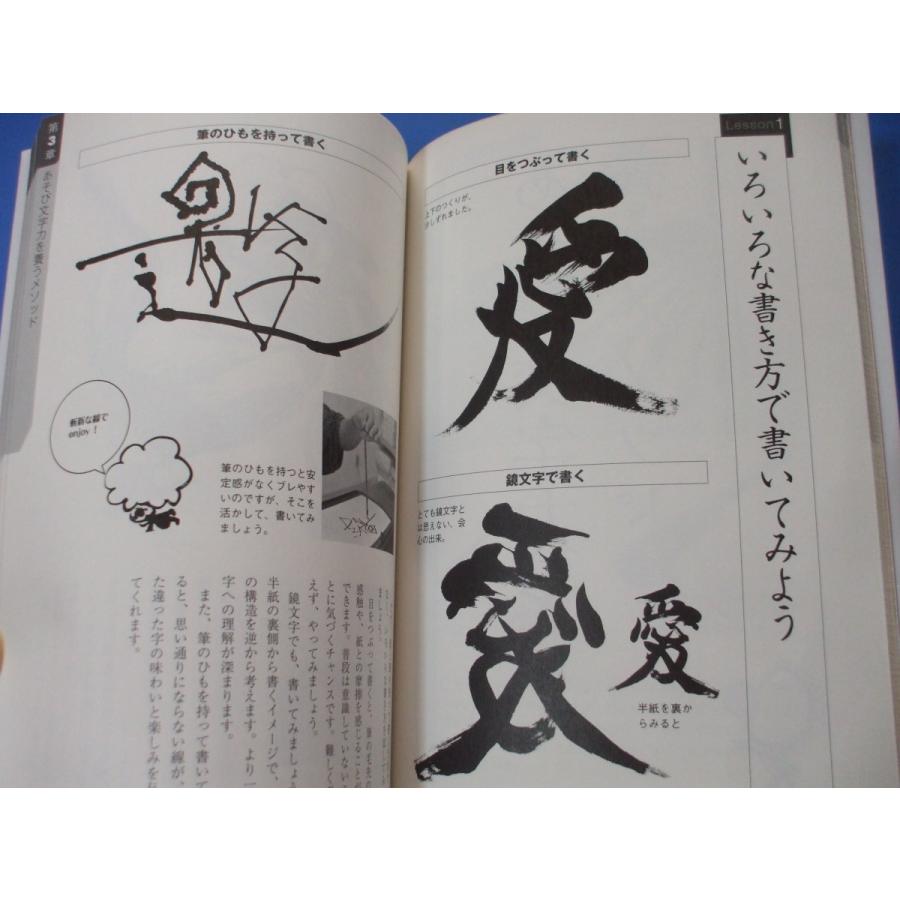 Lesson 1
いろいろな書き方で書いてみよう
目をつぶって書く
上下のつくりが、
少しずれました。
愛
鏡文字で書く
とても鏡文字と
は思えない、会
心の出来。
愛
半紙を裏か
らみると
第3章
あそび文字力を養うメソッド
筆のひもを持って書く
遊
斬新な線で
enjoy！
筆のひもを持つと安
定感がなくブレやす
いのですが、そこを
活かして、書いてみ
ましょう。
ましょう。
目をつぶって書くと、筆の毛先の
感触や、紙との摩擦を感じることが
できます。普段は意識していない
とに気づくチャンスです。難しく
えず、やってみましょう。
鏡文字でも、書いてみましょう
半紙の裏側から書くイメージで、
の構造を逆から考えます。より一
字への理解が深まります。
また、筆のひもを持って書いて
ると、思い通りにならない線が、
た違った字の味わいと楽しみを
てくれます。